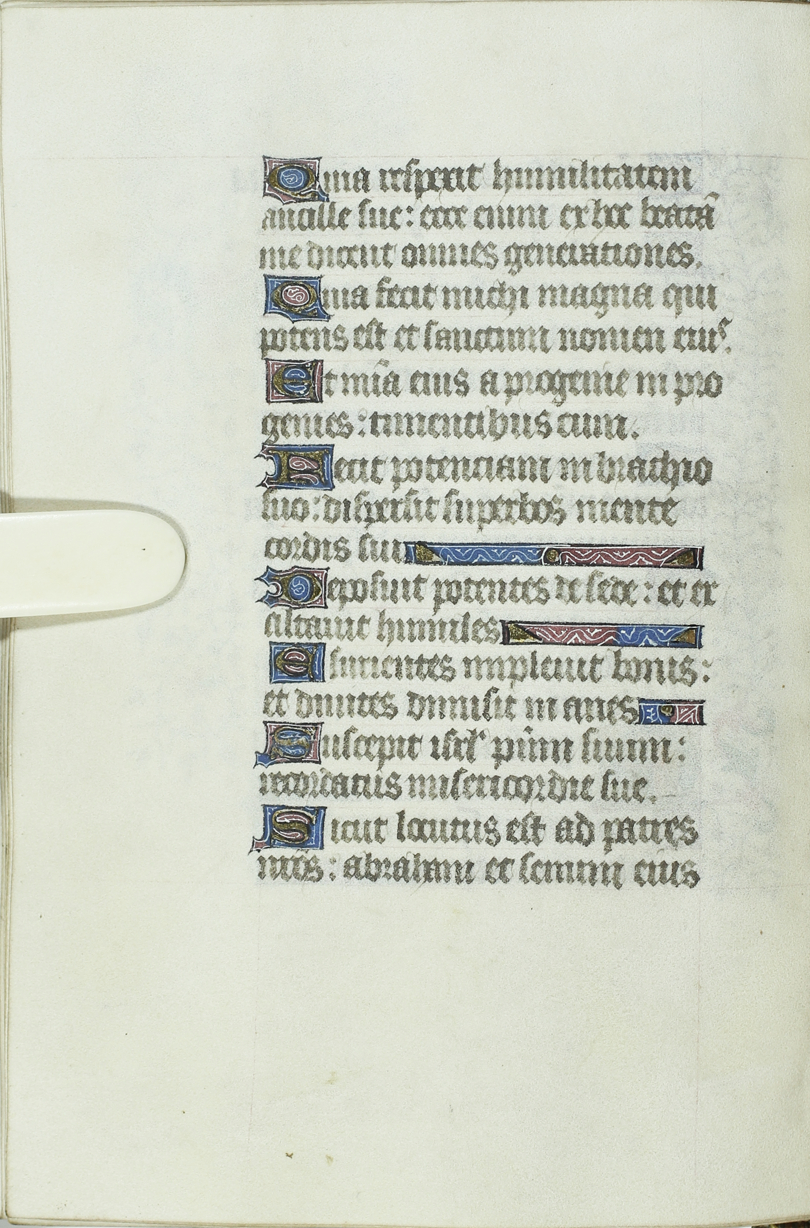 Quia respexit humilitatem
ancille sue: ecce enim ex hoc beatā
me dicent omnes generationes.
Quia fecit michi magna qui
potens est et sanctum nomen eiuˢ.
Et mīa eius a progenie in pro
genies: timentibus eum.
Fecit potenciam in brachio
suo: dispersit superbos mente
cordis sui
Deposuit potentes de sede: et ex
altauit humiles
Esurientes impleuit bonis:
et diuites dimisit inanes
Suscepit isrl' pūm suum:
recordatus misericordie sue.
Sicut locutus est ad patres
nrōs: abraham et semini eius